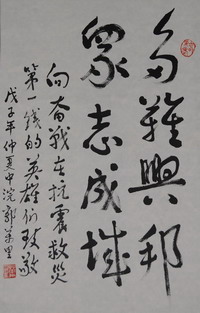 多難興邦
眾志成城
向奋戰在抗震救災
第一线的英雄们致敬
戊子年仲夏中浣郭笑里